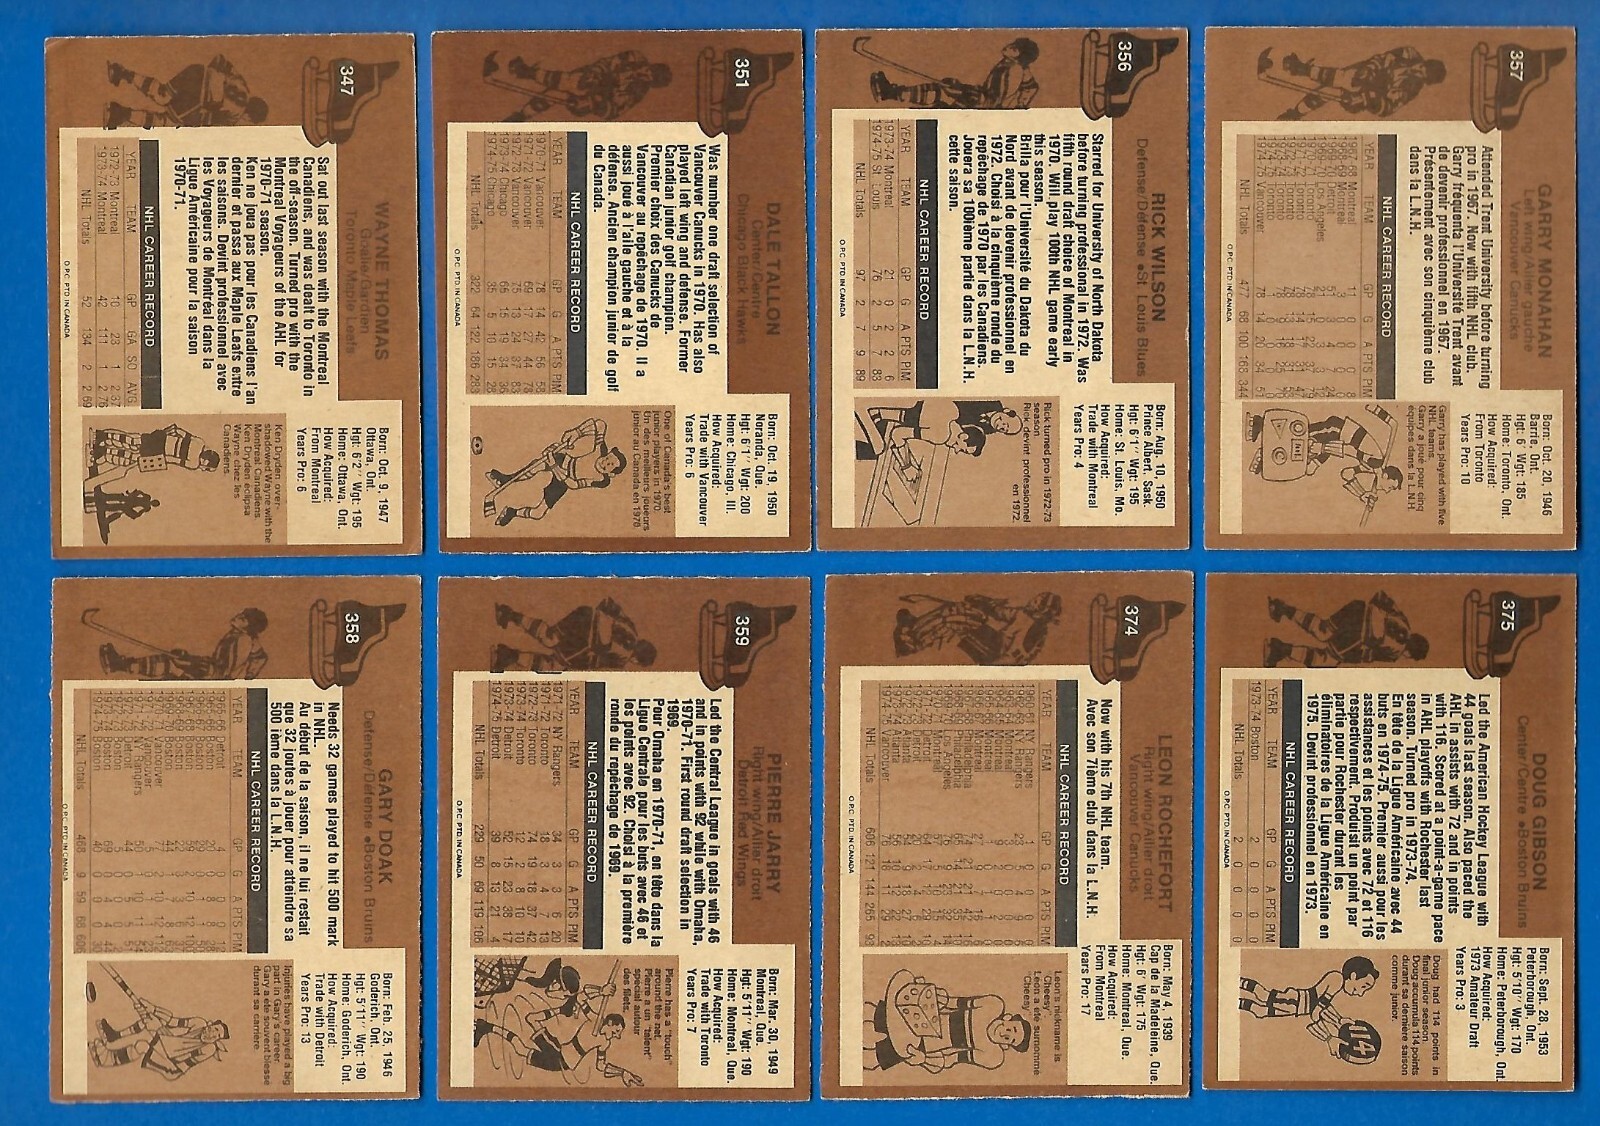 347
WAYNE THOMAS
Goalie/Gardien
Toronto Maple Leafs
Sat out last season with the Montreal
Canadiens, and was dealt to Toronto in
the off-season. Turned pro with the
Montreal Voyageurs of the AHL for
1970-71 season.
Ken ne joua pas pour les Canadiens l'an
dernier et passa aux Maple Leafs entre
les saisons. Devint professionnel avec
les Voyageurs de Montréal dans la
Ligue Américaine pour la saison
1970-71.
NHL CAREER RECORD
YEAR TEAM GP GA SO AVG.
1972-73 Montreal 10 23 1 2.37
1973-74 Montreal 42 111 1 2.76
NHL Totals 52 134 2 2.69
O.P.C. PTD. IN CANADA
Born: Oct. 9, 1947
Ottawa, Ont.
Hgt: 6'2" Wgt: 195
Home: Ottawa, Ont.
How Acquired:
From Montreal
Years Pro: 6
Ken Dryden over-
shadowed Wayne with the
Montreal Canadiens.
Ken Dryden éclipsa
Wayne chez les
Canadiens.
351
DALE TALLON
Center/Centre
Chicago Black Hawks
Was number one draft selection of
Vancouver Canucks in 1970. Has also
played left wing and defense. Former
Canadian junior golf champion.
Premier choix des Canucks de
Vancouver au repêchage de 1970. Il a
aussi joué à l'aile gauche et à la
défense. Ancien champion junior de golf
du Canada.
NHL CAREER RECORD
YEAR TEAM GP G A PTS PIM
1970-71 Vancouver 78 14 42 56 58
1971-72 Vancouver 69 17 27 44 78
1972-73 Vancouver 75 13 24 37 83
1973-74 Chicago 65 15 19 34 36
1974-75 Chicago 35 5 10 15 28
NHL Totals 322 64 122 186 283
O.P.C. PTD. IN CANADA
Born: Oct. 19, 1950
Noranda, Que.
Hgt: 6'1" Wgt: 200
Home: Chicago, Ill.
How Acquired:
Trade with Vancouver
Years Pro: 6
One of Canada's best
junior players in 1970.
Un des meilleurs joueurs
junior au Canada en 1970
356
RICK WILSON
Defense/Défense ●St. Louis Blues
Starred for University of North Dakota
before turning professional in 1972. Was
fifth round draft choice of Montreal in
1970. Will play 100th NHL game early
this season.
Brilla pour l'Université du Dakota du
Nord avant de devenir professionnel en
1972. Choisi à la cinquième ronde du
repêchage de 1970 par les Canadiens.
Jouera sa 100ième partie dans la L.N.H.
cette saison.
NHL CAREER RECORD
YEAR TEAM GP G A PTS PIM
1973-74 Montreal 21 0 2 2 6
1974-75 St. Louis 76 2 5 7 83
NHL Totals 97 2 7 9 89
O.P.C. PTD. IN CANADA
Born: Aug. 10, 1950
Prince Albert, Sask.
Hgt: 6'1" Wgt: 195
Home: St. Louis, Mo.
How Acquired:
Trade with Montreal
Years Pro: 4
Rick turned pro in 1972-73
season.
Rick devint professionnel
en 1972.
357
GARRY MONAHAN
Left wing/Ailier gauche
Vancouver Canucks
Attended Trent University before turning
pro in 1967. Now with fifth NHL club.
Garry fréquenta l'Université Trent avant
de devenir professionnel en 1967.
Présentement avec son cinquième club
dans la L.N.H.
NHL CAREER RECORD
YEAR TEAM GP G A PTS PIM
1967-68 Montreal
1974-75 Vancouver
NHL Totals 477 68 100 168 344
O.P.C. PTD. IN CANADA
Born: Oct. 20, 1946
Barrie Ont.
Hgt: 6' Wgt: 185
Home: Toronto, Ont.
How Acquired:
From Toronto
Years Pro: 10
Garry has played with five
NHL teams.
Garry a joué pour cinq
équipes dans la L.N.H.
358
GARY DOAK
Defense/Défense ●Boston Bruins
Needs 32 games played to hit 500 mark
in NHL.
Au début de la saison, il ne lui restait
que 32 joutes à jouer pour atteindre sa
500 ième dans la L.N.H.
NHL CAREER RECORD
YEAR TEAM GP G A PTS PIM
NHL Totals 468 9 59 68 608
O.P.C. PTD. IN CANADA
Born: Feb. 25, 1946
Goderich, Ont.
Hgt: 5'11" Wgt: 190
Home: Goderich, Ont.
How Acquired:
Trade with Detroit
Years Pro: 13
Injuries have played a big
part in Gary's career.
Gary a été souvent blessé
durant sa carrière
359
PIERRE JARRY
Right wing/Ailier droit
Detroit Red Wings
Led the Central League in goals with 46
and in points with 92 while with Omaha,
1970-71. First round draft selection in
1969.
Pour Omaha en 1970-71, en tête dans la
Ligue Centrale pour les buts avec 46 et
les points avec 92. Choisi à la première
ronde du repêchage de 1969.
NHL CAREER RECORD
YEAR TEAM GP G A PTS PIM
1971-72 NY Rangers 34 3 3 6 20
1971-72 Toronto 18 3 4 7 13
1972-73 Toronto 74 19 18 37 42
1973-74 Toronto 12 2 8 10 10
1973-74 Detroit 52 15 23 38 17
1974-75 Detroit 39 8 13 21 4
NHL Totals 229 50 69 119 106
O.P.C. PTD. IN CANADA
Born: Mar. 30, 1949
Montreal, Que.
Hgt: 5'11" Wgt: 190
Home: Montreal, Que.
How Acquired:
Trade with Toronto
Years Pro: 7
Pierre has a "touch"
around the net.
Pierre a un "talent"
spécial autour
des filets.
374
LEON ROCHEFORT
Right wing/Ailier droit
Vancouver Canucks
Now with his 7th NHL team.
Avec son 7ième club dans la L.N.H.
NHL CAREER RECORD
YEAR TEAM GP G A PTS PIM
NHL Totals 606 121 144 265 93
O.P.C. PTD. IN CANADA
Born: May 4, 1939
Cap de la Madeleine, Que.
Hgt: 6' Wgt: 175
Home: Montreal, Que.
How Acquired:
From Montreal
Years Pro: 17
Leon's nickname is
"Cheesy".
Leon a été surnommé
"Cheesy".
375
DOUG GIBSON
Center/Centre ●Boston Bruins
Led the American Hockey League with
44 goals last season. Also paced the
AHL in assists with 72 and in points
with 116. Scored at a point-a-game pace
in AHL playoffs with Rochester last
season. Turned pro in 1973-74.
En tête de la Ligue Américaine avec 44
buts en 1974-75. Premier aussi pour les
assistances et les points avec 72 et 116
respectivement. Produisit un point par
partie pour Rochester durant les
éliminatoires de la Ligue Américaine en
1975. Devint professionnel en 1973.
NHL CAREER RECORD
YEAR TEAM GP G A PTS PIM
1973-74 Boston 2 0 0 0 0
NHL Totals 2 0 0 0 0
O.P.C. PTD. IN CANADA
Born: Sept. 28, 1953
Peterborough, Ont.
Hgt: 5'10" Wgt: 170
Home: Peterborough, Ont.
How Acquired:
1973 Amateur Draft
Years Pro: 3
Doug had 114 points in
final junior season.
Doug accumula 114 points
durant sa dernière saison
comme junior.
114